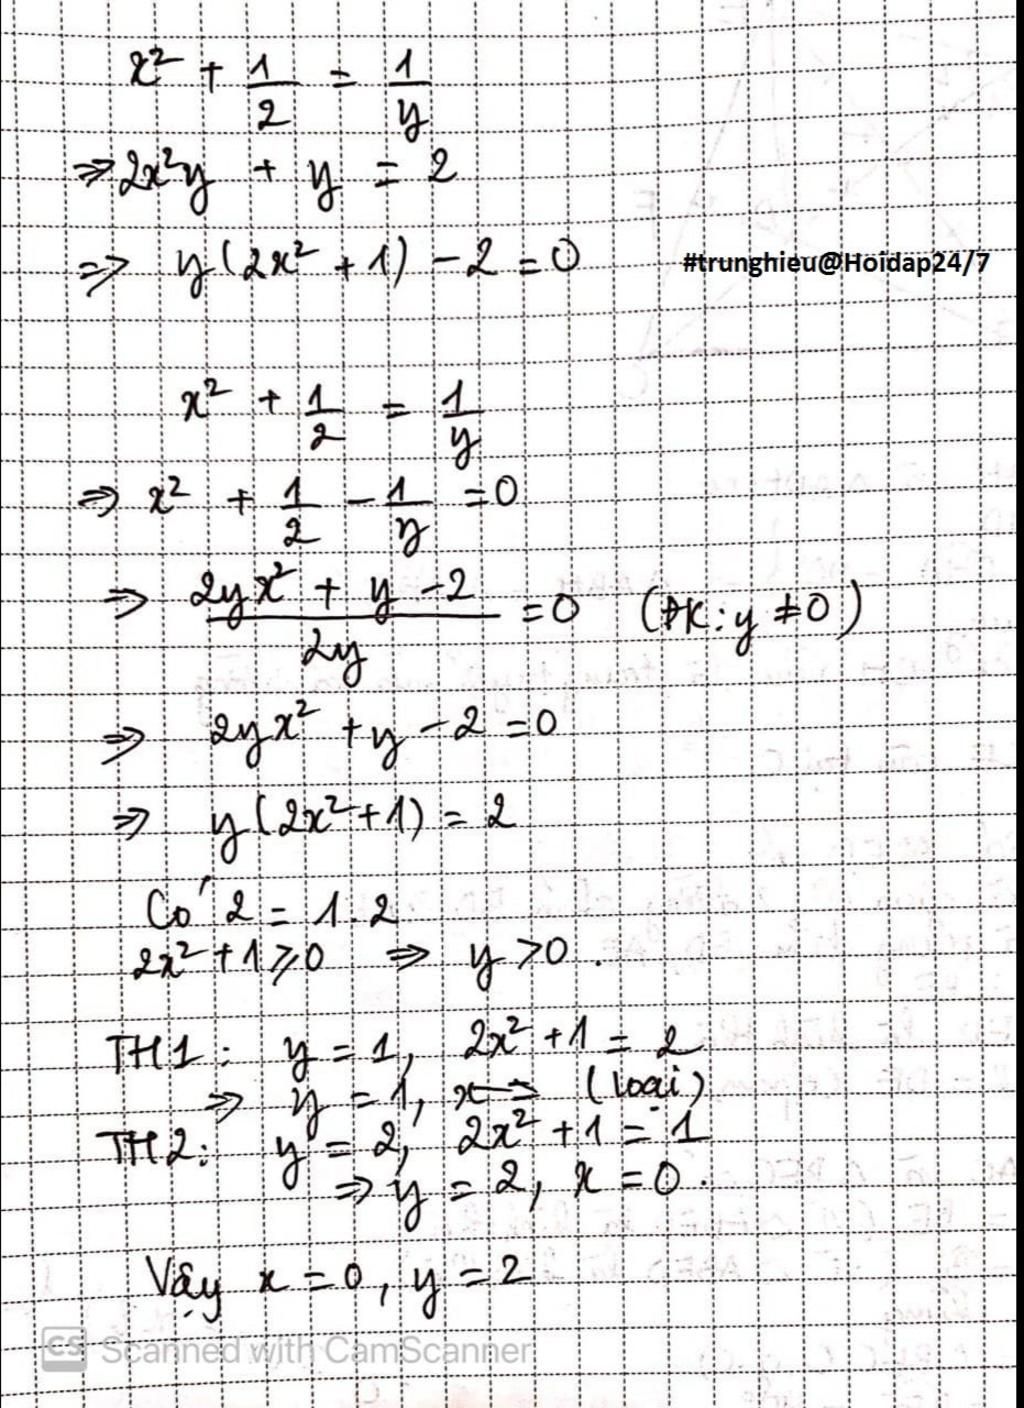 x² + 1/2 = 1/y
⇒ 2x²y + y = 2
⇒ y(2x² + 1) - 2 = 0
#trunghieu@Hoidap24/7
x² + 1/2 = 1/y
⇒ x² + 1/2 - 1/y = 0
⇒ (2yx² + y - 2)/2y = 0 (ĐK: y ≠ 0)
⇒ 2yx² + y - 2 = 0
⇒ y(2x² + 1) = 2
Có 2 = 1.2
2x² + 1 ⩾ 0 ⇒ y > 0.
TH1: y = 1, 2x² + 1 = 2
⇒ y = 1, x (loại)
TH2: y = 2, 2x² + 1 = 1
⇒ y = 2, x = 0.
Vậy x = 0, y = 2
CS Scanned with CamScanner